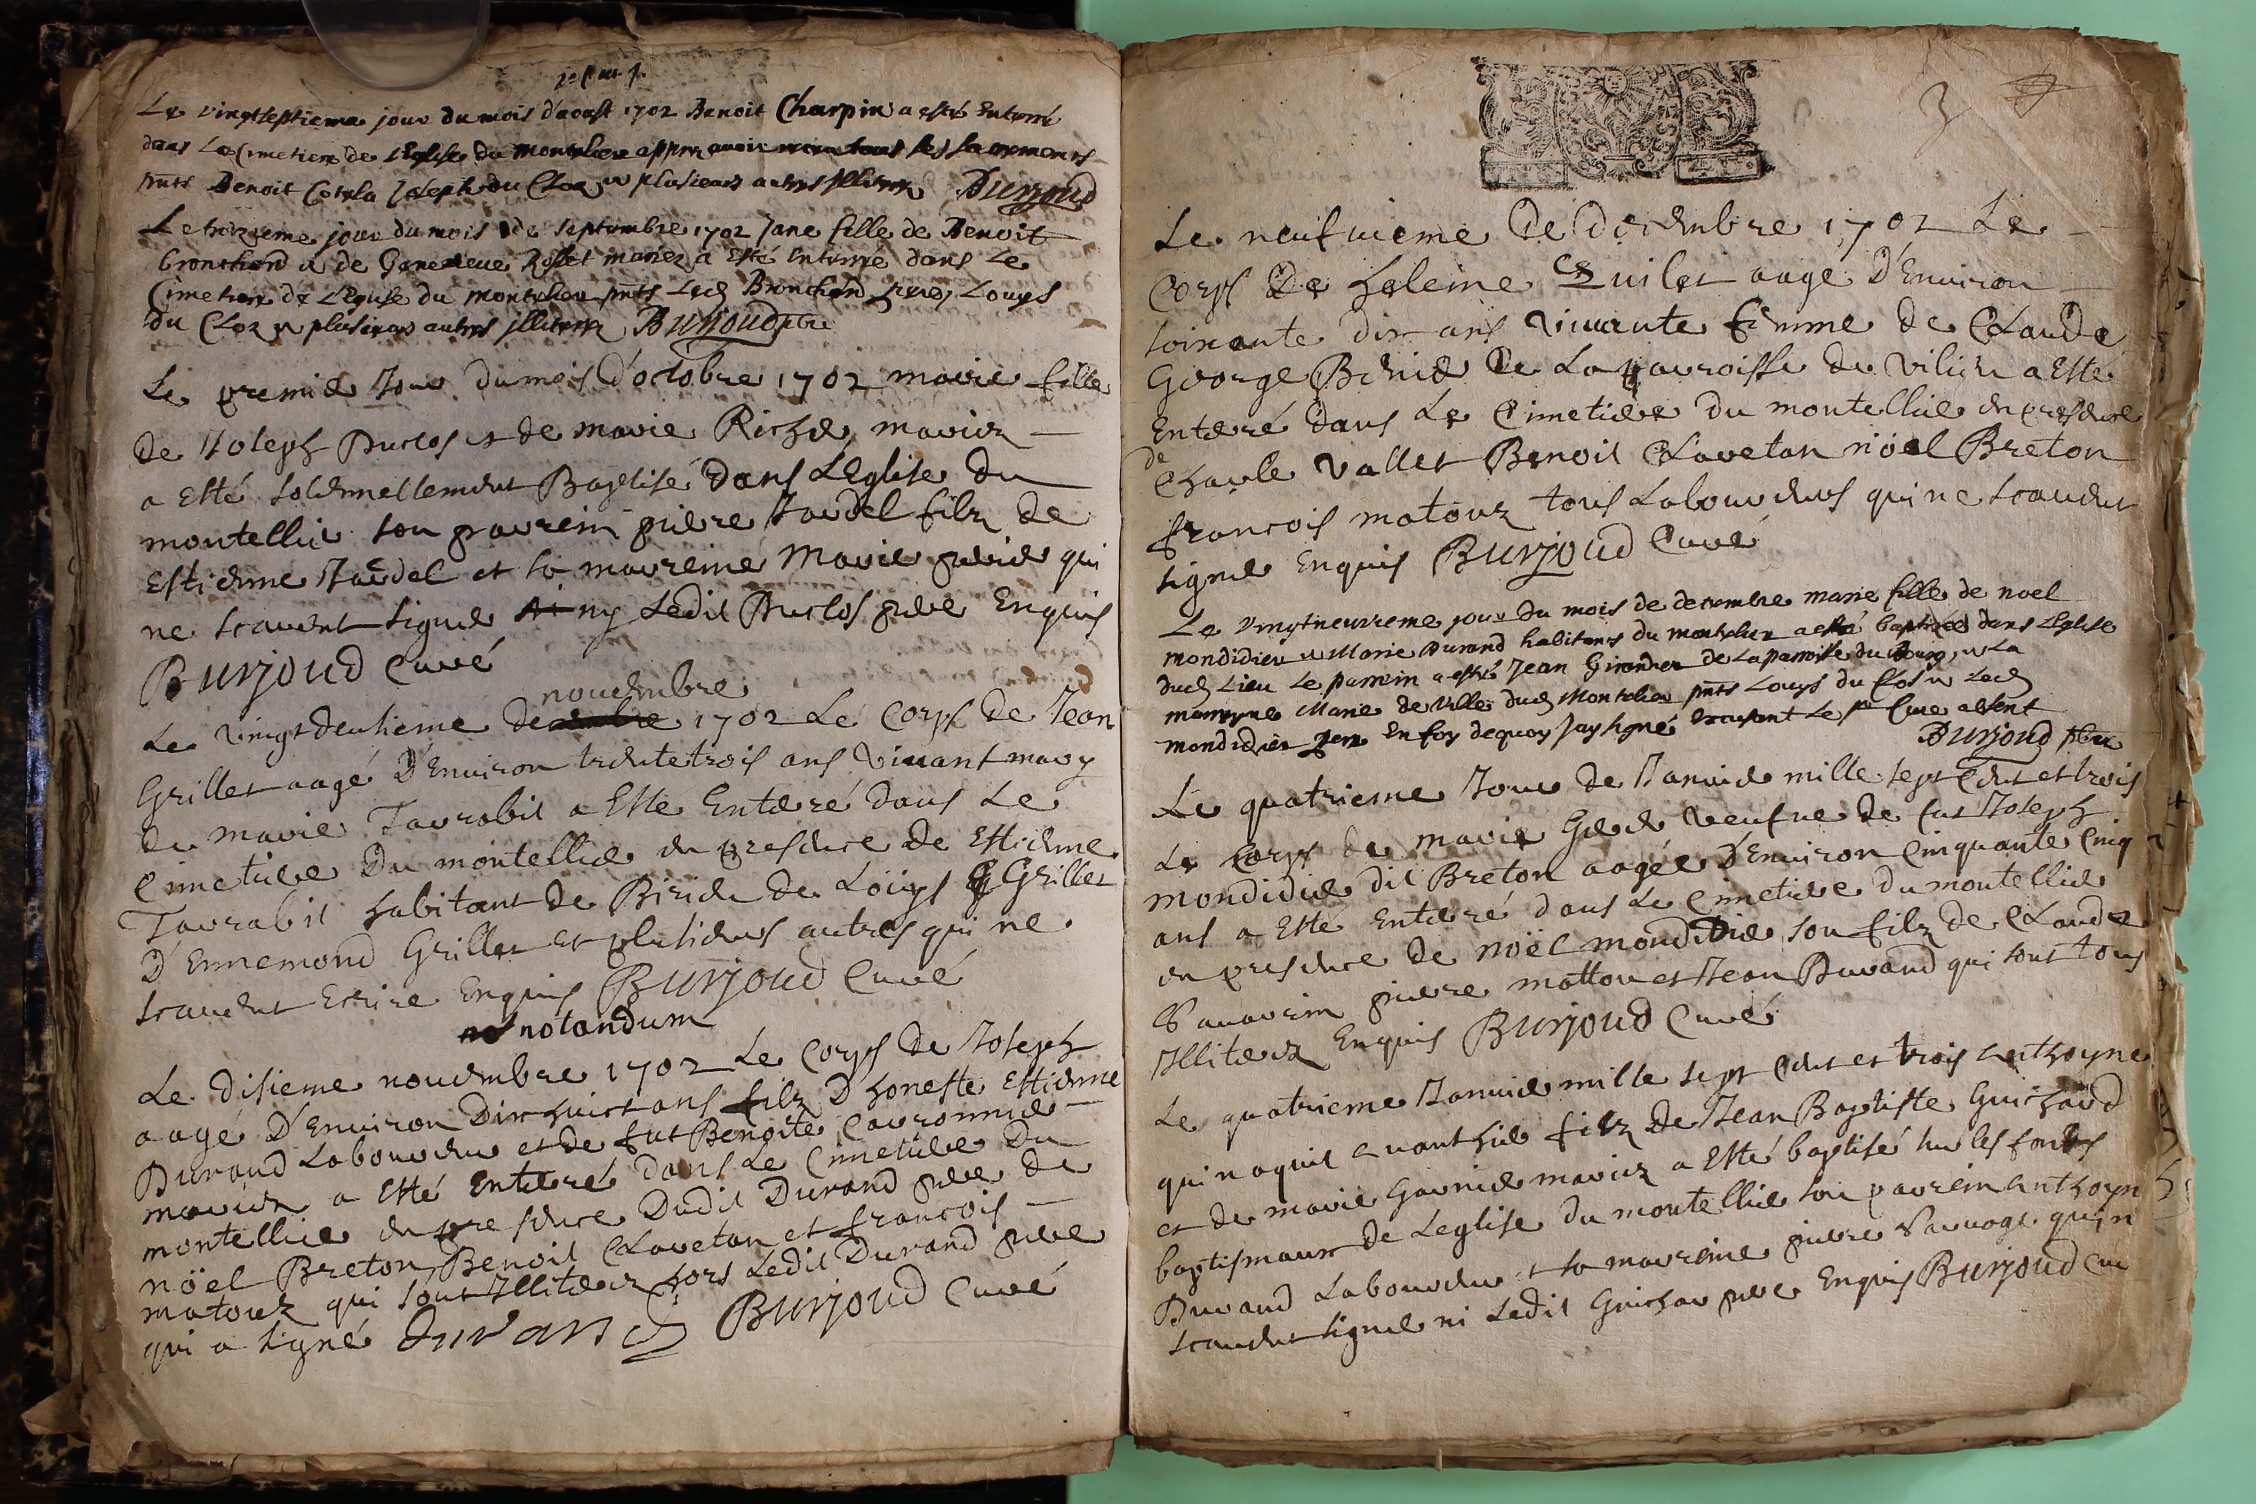 Le vingtseptieme jour du mois d'aoust 1702 Benoit Charpin a esté Enterré
dans Le Cimetiere de L'Eglise du montelier appres avoir receu tous les sacremens
pnts Benoit Cotela Joseph du Clos et plusieurs autres illiterez Burjoud
Le troizieme jour du mois de septembre 1702 Jane fille de Benoit
bronchard et de Genevieve Rollet mariez a Esté Enterrée dans Le
Cimetiere de L'Eglise du montelier pnts Led Bronchard pere, Louys
du Clos et plusieurs autres illiterez Burjoud ptre
Le premier Jour du mois d'octobre 1702 marie fille
de Joseph Duclos et de marie Richer mariez
a Esté solennellement Baptisé dans L'Eglise du
montellier son parrein pierre Jardel filz de
Estienne Jardel et sa marreine Marie perier qui
ne scavent signer ny Ledit Duclos pere Enquis
Burjoud Curé
novembre
Le vingtdeusieme 1702 Le Corps de Jean
Grillet aagé D'Environ trentetrois ans vivant mary
de marie Tarrabit a Esté Enterré dans Le
Cimetiere Du montellier en presence de Estienne
Tarrabit habitant de Birieu de Loüys Grillet
D'Ennemond Grillet et plusieurs autres qui ne
scavent Escrire Enquis Burjoud Curé
notandum
Le disieme novembre 1702 Le Corps de Joseph
aagé D'Environ Dixhuict ans filz D'honeste Estienne
Durand Laboureur et de fut Benoite Carronnier
mariez a Esté Enterré dans Le Cimetiere Du
montellier en presence Dudit Durand pere de
nöel Breton Benoit Claveton et francois
matouz qui sont Illiterez hors Ledit Durand pere
qui a signé durand Burjoud Curé
3
Le neufvieme de decembre 1702 Le
Corps De heleine Quilet aage D'Environ
soixante dix ans vivante femme de Claude
George Benier De La parroisse de vilieu a Esté
Enterré dans Le Cimetiere Du montellier en presence
de
Charle vallet Benoit Claveton nöel Breton
francois matouz tous Laboureurs qui ne scavent
signer Enquis Burjoud Curé
Le vingtneuvieme jour du mois de decembre marie fille de noel
mondidier et Marie Durand habitans du montelier a esté baptizée dans L'Eglise
dud Lieu Le parrein a esté Jean Girardier de La parroisse du Bourg, et La
marreyne Marie de Ville dud Montelier pnts Louys du Clos et Led
mondidier pere En foy dequoy J'ay signé Le sr Curé absent
Burjoud ptre
Le quatrieme Jour de Janvier mille sept Cent et trois
Le Corps de marie veufve de fut Joseph
mondidier dit Breton aagée D'Environ Cinquante Cinq
ans a Esté Enterré dans Le Cimetiere du montellier
en presence de nöel mondidier son filz de Claude
pierre mattou et Jean Durand qui sont tous
Illiterez Enquis Burjoud Curé
Le quatrieme Janvier mille sept Cent et trois Anthoyne
qui naquit avanthier filz de Jean Baptiste Guichard
et de marie Garnier mariez a Esté baptisé sur les fonts
baptismaux de L'eglise du montellier son parrein Anthoyn
Durand Laboureur et sa marreine pierre qui n
scavent signer ni Ledit Guichar pere Enquis Burjoud Cu